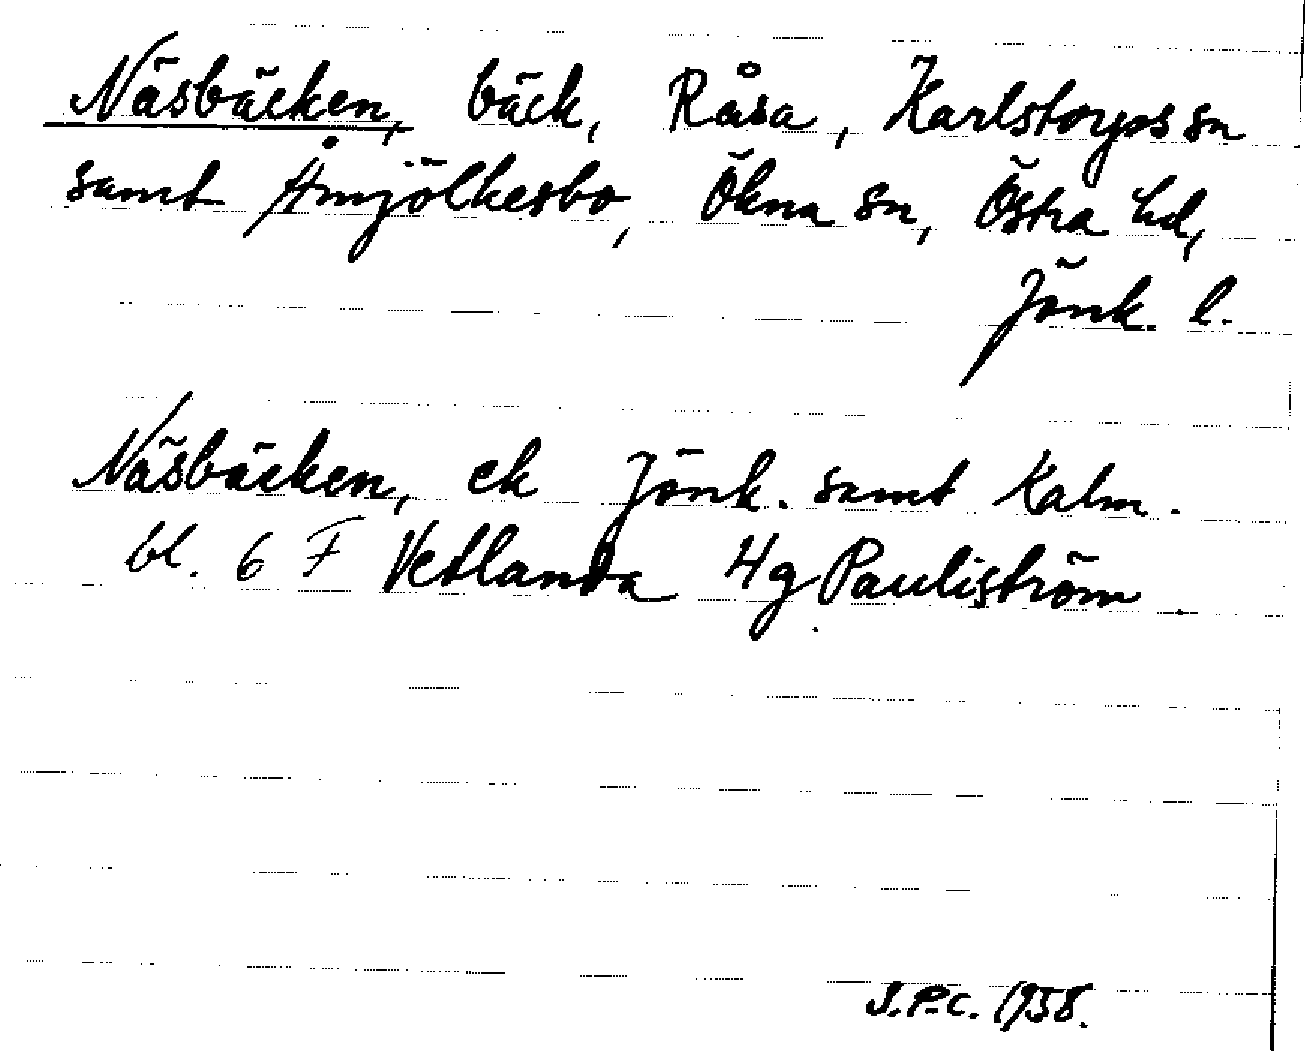 Näsbäcken, bäck, Råsa, Karlstorps sn
samt Åmjölkesbo, Ökna sn, Östra hd,
Jönk. l.
Näsbäcken, ek Jönk. samt Kalm.
bl. 6 F Vetlanda 4g Pauliström
J.P.C. 1958.